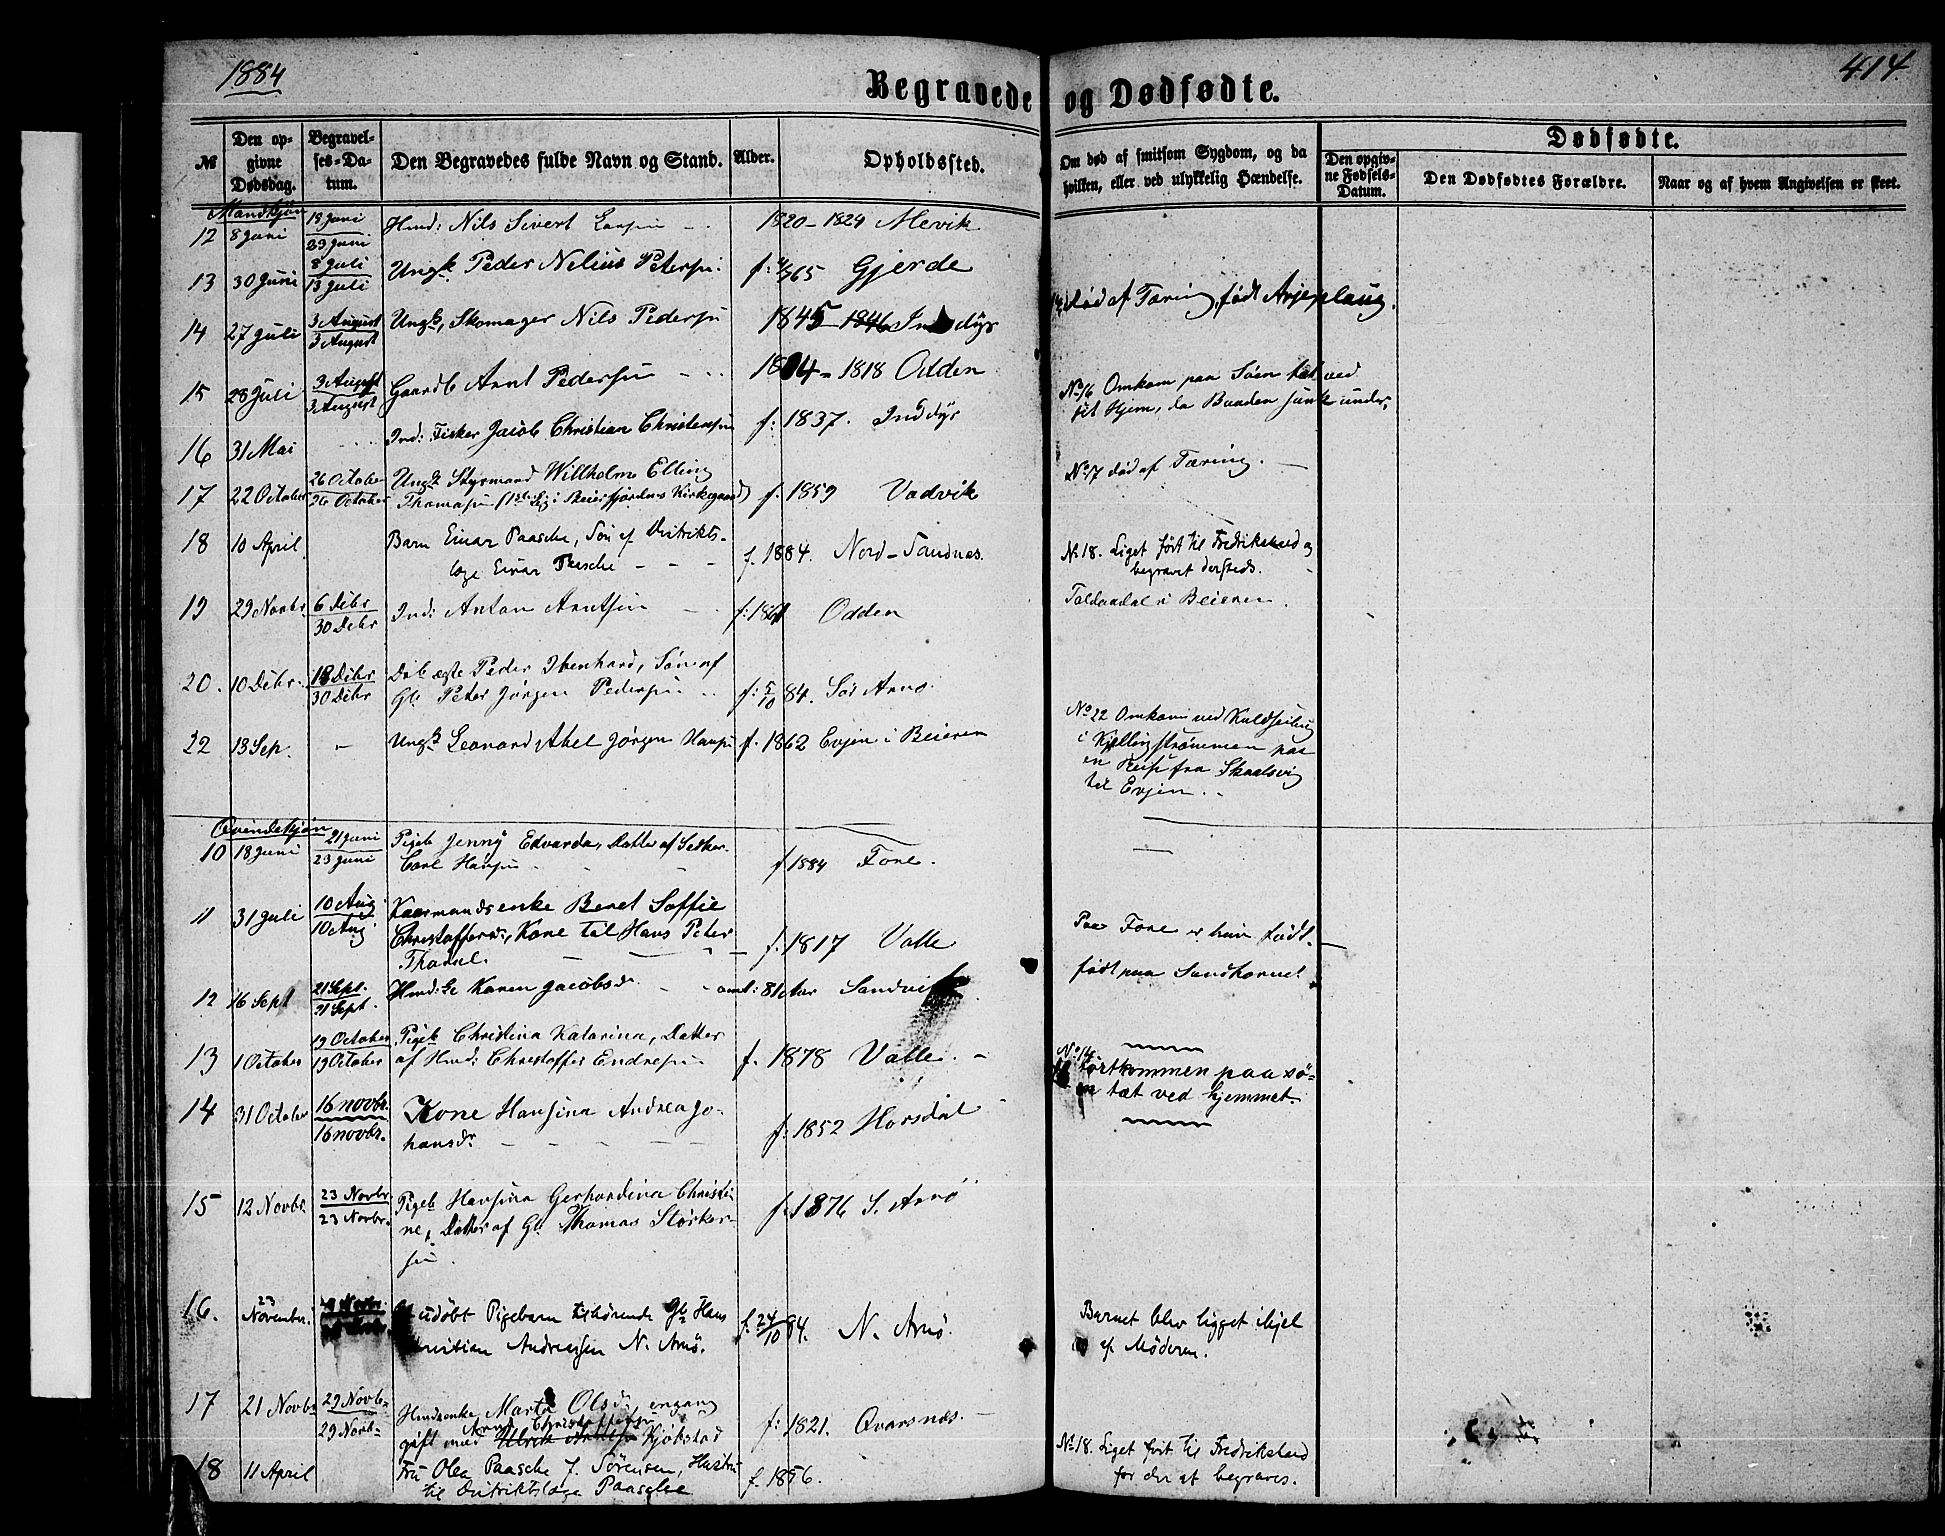 1884
414
Begravede og Dødfødte.
№
Den opgivne Dødsdag.
Begravelses-Datum.
Den Begravedes fulde Navn og Stand.
Alder.
Opholdssted.
Om død af smitsom Sygdom, og da
hvilken, eller ved ulykkelig Hændelse.
Dødfødte.
Den opgivne Fødsels-Datum.
Den Dødfødtes Forældre.
Naar og af hvem Angivelsen er skeet.
Mandkjøn
12 8 Juni 18 Juni 29 Juni Hmd: Nils Sivert 1820-1824 Mevik
13 30 Juni 8 Juli 13 Juli Ungk Peder Nelius Petersen f: 65 Gjerde
14 27 Juli 3 August 3 August Ungk, Skomager Nils Pedersen 1845 1846 Inddyr
død af Tæring, født Arjeplaug.
15 28 Juli 3 August 3 August Gaardb Arnt Pedersen 1818 Odden
16 31 Mai Ind: Fisker Jacob Christian Christensen f: 1837. Inddyr
No 16 Omkom paa Søen tæt ved
sit Hjem, da Baaden sank under,
17 22 October 26 October 26 October Ungk Styrmand Willholm Elling
Thomasen (1ste Lig i Skeierfjordens Kirkegaard) f. 1859 Vadvik
No 17 død af Tæring.
18 10 April Barn Einar Paasche, Søn af Distrikts-
læge Einar Paasche f. 1884. Nord-Sandnes.
No 18. Liget ført til Fredrikshald og
begravet dersteds.
19 29 Novbr 6 Debr 30 Debr Ind: Anton Arntsen f: 1861 Odden
i Beieren.
20. 10 Debr. 18 Debr 30 Debr Peder Ibenhard, Søn af
Gb Peter Jørgen Pedersen f: 5/10 84. Sør Arnø.
22 13 Sep. - Ungk Leonard Abel Jørgen Hansen f. 1862 Evjen i Beieren
No 22 Omkom ved Kuldseiling
i Kjellingstrømmen paa
en Reise fra Skaalsvig
til Evjen.
Qvindekjøn
10 18 Juni 21 Juni 23 Juni Pigeb Jenny Edvarda, Datter af
Carl Hansen f 1884 Fore.
11 31 Juli 10 Aug 10 Aug Kaarmandsenke Beret Soffie
Christoffersdr, Kone til Hans Peter
f. 1817 Valle
Paa Fore er hun født.
12 16 Sept 21 Sept. 21 Sept. Hmd: Karen Jacobsdr omt: 81 Aar Sandvik
født paa Sandhornet
13 1 October 19 October 19 October Pigeb Christina Katarina, Datter
af Hmd: Christoffer Endresen f. 1878 Valle. -
14 31 October 16 novbr. 16 novbr. Kone Hansina Andrea Jo-
hansdr f: 1852 Horsdal
No 14.
Bortkommen paa sø-
en tæt ved hjemmet.
15 12 Novbr. 23 Novbr 23 Novbr. Pigeb Hansina Gerhardina Christi-
ne, Datter af Gb. Thomas Storker-
sen f. 1876 S. Arnø
16. 23 November udøbt Pigebarn tilhørende Gb Hans
Kristian Andreassen N. Arnø. f. 24/10 84. N. Arnø.
Barnet blev ligget ihjel
af Moderen.
17 21 Novbr 29 Novbr. 29 Novbr. Hmdsenke Marta Olsdr engang
gift med Kjøkstad f: 1821. Qvarsnæs. -
18 11 April Fru Olea Paasche f. Sørensen, Hustru
til Distriktslæge Paasche f. 1856.
No 18. Liget ført til Fredrikshald
for der at begraves.